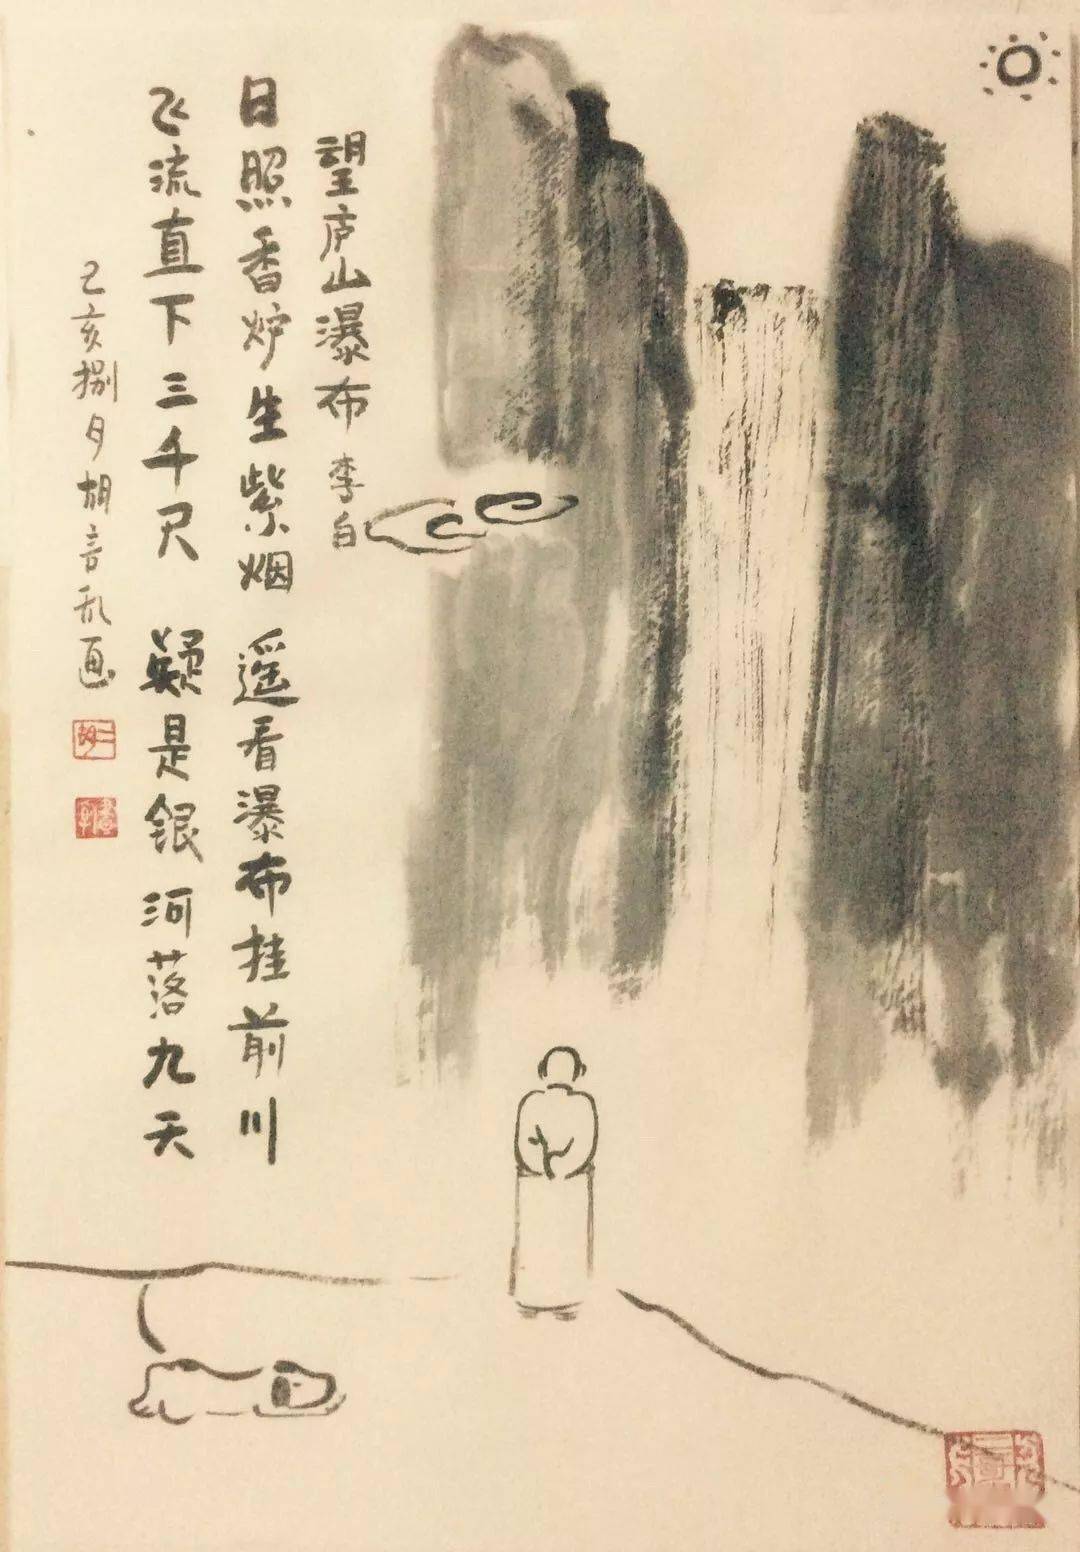 望庐山瀑布 李白
日照香炉生紫烟 遥看瀑布挂前川
飞流直下三千尺 疑是银河落九天
己亥捌月胡言乱画